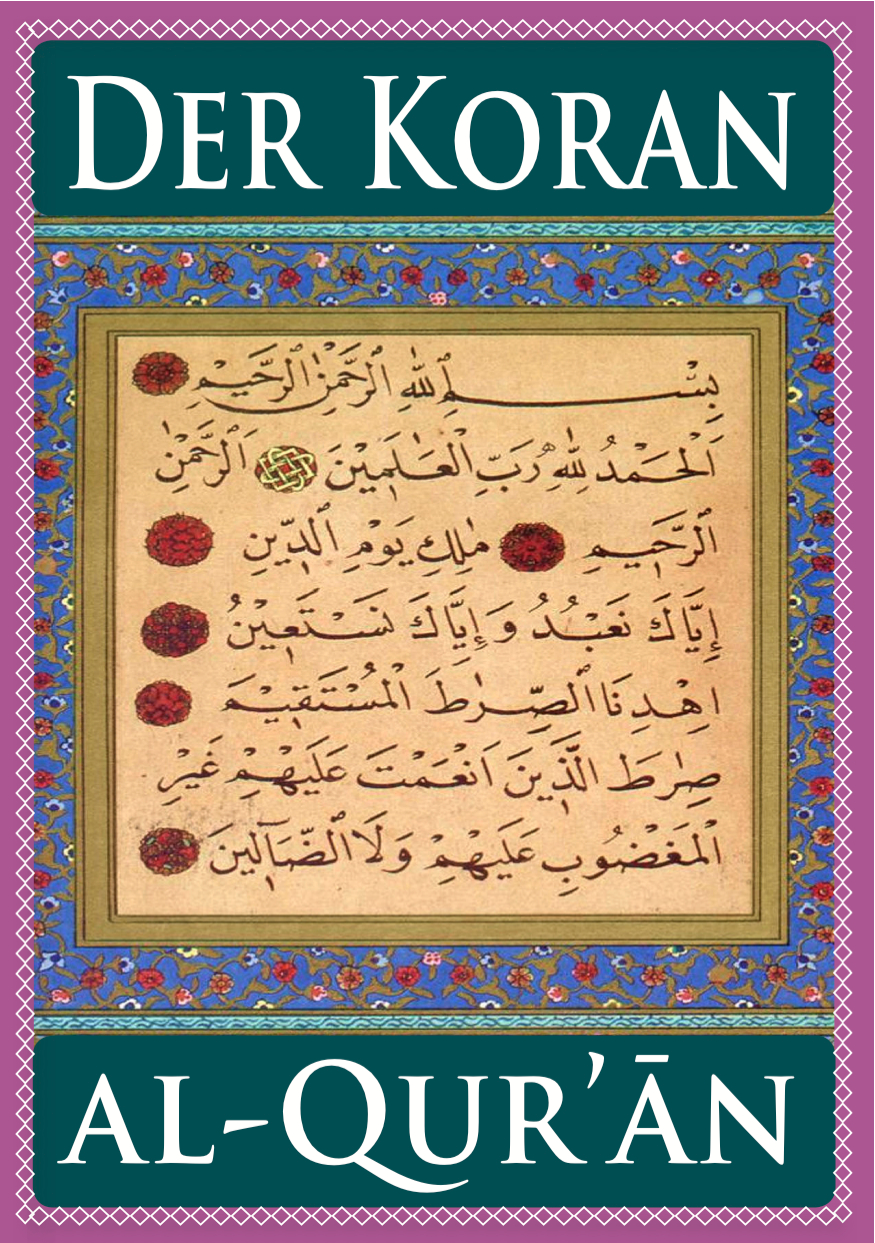 DER KORAN
بِسْمِ اللهِ الرَّحْمٰنِ الرَّحِيمِ
اَلْحَمْدُ لِلّٰهِ رَبِّ الْعَالَمِينَ اَلرَّحْمٰنِ
الرَّحِيمِ مٰلِكِ يَوْمِ الدِّينِ
إِيَّاكَ نَعْبُدُ وَإِيَّاكَ نَسْتَعِينُ
اِهْدِنَا الصِّرٰطَ الْمُسْتَقِيمَ
صِرٰطَ الَّذِينَ اَنْعَمْتَ عَلَيْهِمْ غَيْرِ
الْمَغْضُوبِ عَلَيْهِمْ وَلَا الضَّآلِّينَ
AL-QUR’ĀN